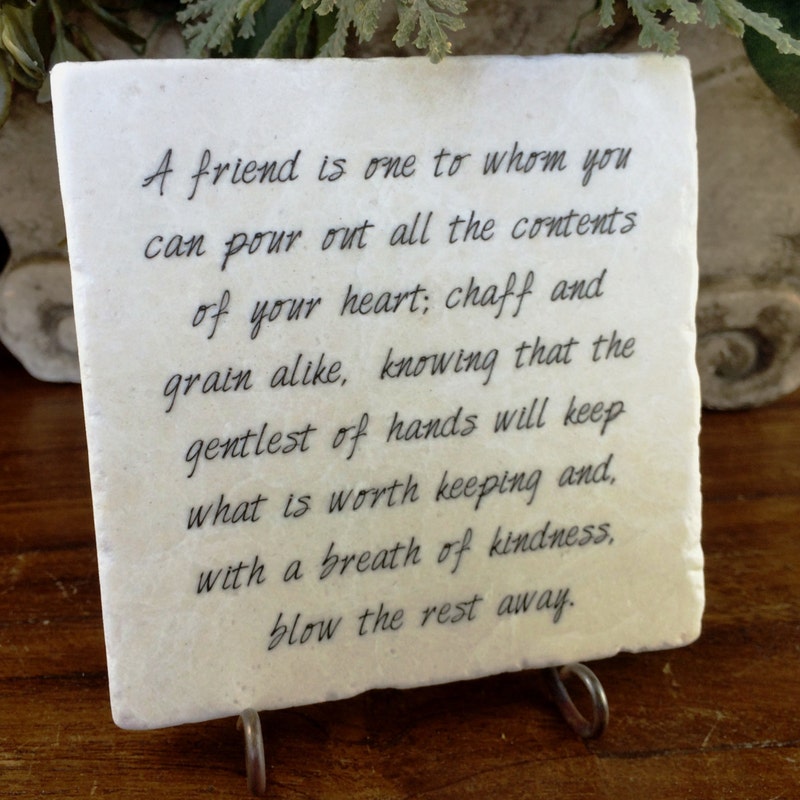 A friend is one to whom you
can pour out all the contents
of your heart; chaff and
grain alike, knowing that the
gentlest of hands will keep
what is worth keeping and,
with a breath of kindness,
blow the rest away.